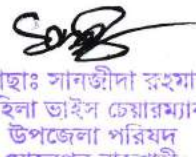 ছাঃ সানজীদা রহমা
হিলা ভাইস চেয়ারম্যা
উপজেলা পরিষদ